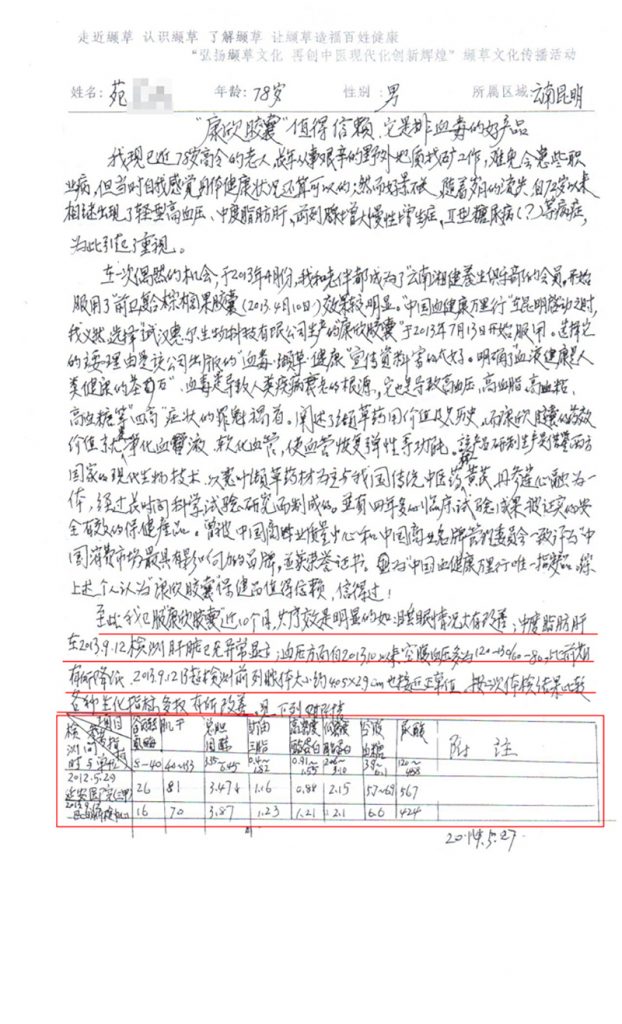 走近缬草 认识缬草 了解缬草 让缬草造福百姓健康
“弘扬缬草文化 再创中医现代化创新辉煌”缬草文化传播活动
姓名: 苑 年龄: 78岁 性别: 男 所属区域: 云南昆明
“康欣胶囊”值得信赖、它是排血毒的好产品
我现已近78岁高令的老人,战年从事艰辛的野外地质找矿工作,难免会患些职
业病,但当时自我感觉身体健康状况还算可以的,然而好景不 随着岁月的流失,自72岁以来
相继出现了轻型高血压、中度脂肪肝,前列腺增大慢性增生症,Ⅱ型糖尿病(?)等病症,
为此引起了重视。
在一次偶然的机会,于2013年4月份,我和老伴都成为了“云南湘健养生俱乐部的会员,开始
服用了 胶囊(2013.4月10日)效果较明显。“中国血健康万里行”在昆明启动之时,
我又 选择试 惠尔生物科技有限公司生产的康欣胶囊”于2013年7月13日开始服用。选择它
的主要理由是该公司出版的“血毒·缬草·健康”宣传资料 明确了血液健康是人
类健康的基 血毒是导致人类疾病衰老的根源,它也是导致高血压,高血脂,高血粘,
高血糖等“四高”症状的罪魁祸首。阐述了缬草药用价值及历史,而康欣胶囊的药效
价值 净化血液,软化血管,使血管恢复弹性等功能。该产品研制生产是借鉴西方
国家的现代生物技术,以 缬草药材为主与我国传统中医药黄芪、丹参 融为一
体,经过长时间科学试验研究而制成的。并有四年多的临床试验成果被证实的安
全有效的保健产品。曾被中国商业质量中心和中国商业名牌管理委员会一致评为“中
国消费市场最具有影响力的品牌,并获荣誉证书。 为“中国血健康万里行唯一指定产品。综
上述个人认为“康欣胶囊”保健品值得信赖,信得过!
至此我已服康欣胶囊近10个月,疗效是明显的如:睡眠情况大有改善;中度脂肪肝
在2013.9.12检测肝脏已无异常显示;血压方面自2013.10以来 血压多为120~130/60~80,比前期
有所降低。2013.9.12日超检测前列腺体大小约40.5×29cm也接近正常值。按二次体检结果比较
各种生化指标多数有所改善。见下列对比情
检测时间与单位 项目 谷 转氨酶 肌干 总胆固醇 甘油三酯 高密度脂蛋白 低密度脂蛋白 血糖 尿酸 附 注
2012.5.29 延安医院 26 81 3.474 1.16 0.88 2.15 5.7~6.9 567
16 70 3.87 1.23 1.21 2.1 6.6 424
2014.5.27.